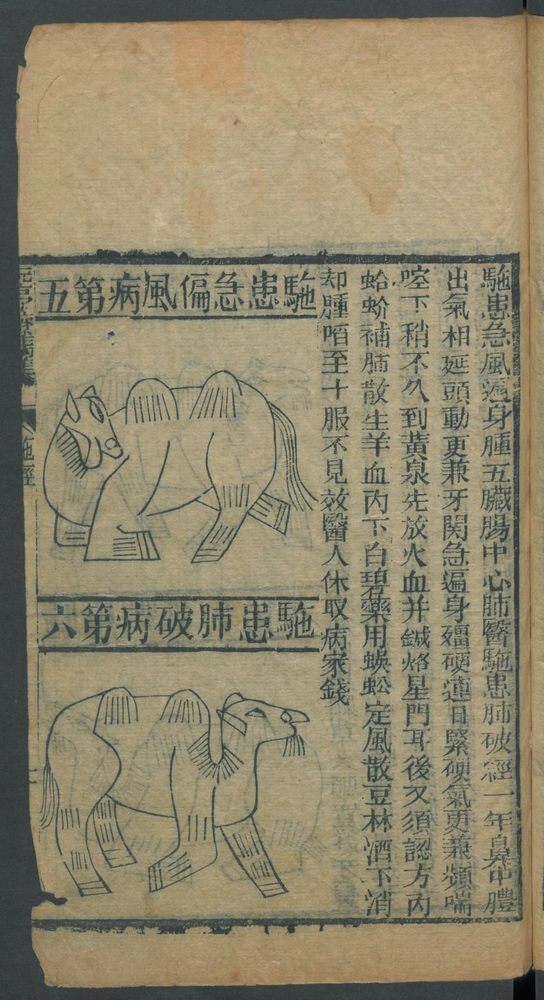 駞患急風遍身腫五臟腸中心肺醫駞患肺破經一年鼻中膿
出氣相延頭動更兼牙関急遍身殭硬連日緊硬氣更兼頻喘
啌下稍不久到黃泉先放火血并鍼烙星門耳後又須認方內
蛤蚧補肺散生羊血內下白礬藥用蜈蚣定風散豆林酒下消
却腫㗖至十服不見效醫人休取病家錢
駞患急偏風病第五
駞患肺破病第六
駞經